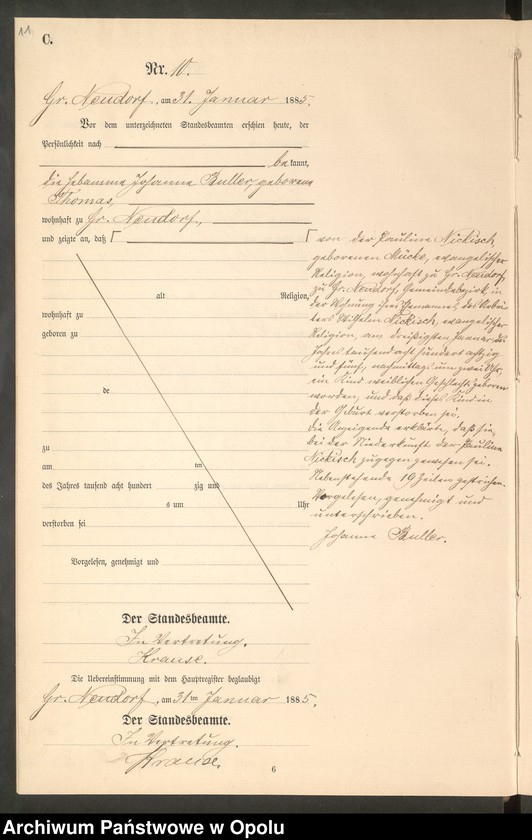 11
C.
Nr. 10.
Gr. Neudorf, am 31. Januar 1885.
Vor dem unterzeichneten Standesbeamten erschien heute, der
Persönlichkeit nach
bekannt,
die Hebamme Johanne Buller, geborene
Thomas,
wohnhaft zu Gr. Neudorf,
und zeigte an, daß
von der Pauline Nickisch,
geborenen Mücke, evangelischer
Religion, wohnhaft zu Gr. Neudorf,
zu Gr. Neudorf, Gemeindebezirk, in
der Wohnung ihres Ehemannes, des
Wilhelm Nickisch, evangelischer
Religion, am dreißigsten Januar des
Jahres tausend acht hundert achtzig
und fünf, nachmittags um zwei Uhr,
ein Kind weiblichen Geschlechts geboren
worden, und daß dieses Kind in
der Geburt verstorben sei.
Die Anzeigende erklärte, daß sie
bei der Niederkunft der Pauline
Nickisch zugegen gewesen sei.
Nebenstehende 19 Zeilen gestrichen.
Vorgelesen, genehmigt und
unterschrieben.
Johanne Buller.
alt Religion,
wohnhaft zu
geboren zu
de
zu
am ten
des Jahres tausend acht hundert zig und
s um Uhr
verstorben sei
Vorgelesen, genehmigt und
Der Standesbeamte.
In Vertretung.
Krause.
Die Uebereinstimmung mit dem Hauptregister beglaubigt
Gr. Neudorf, am 31ten Januar 1885.
Der Standesbeamte.
In Vertretung.
Krause.
6
Archiwum Państwowe w Opolu